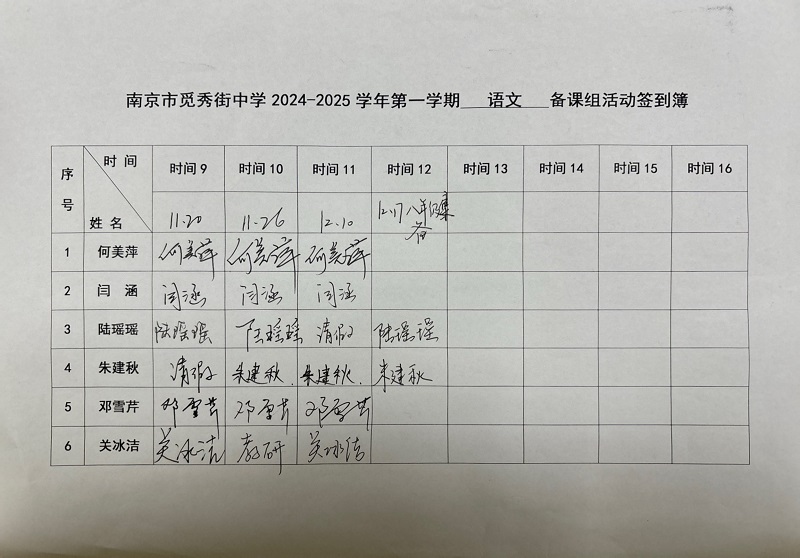 南京市觅秀街中学 2024-2025 学年第一学期 语文 备课组活动签到簿
序号 时间 姓名 时间 9 时间 10 时间 11 时间 12 时间 13 时间 14 时间 15 时间 16
11.20 11.26 12.10 12.17 八年级集备
1 何美萍 何美萍 何美萍 何美萍
2 闫涵 闫涵 闫涵 闫涵
3 陆瑶瑶 陆瑶瑶 陆瑶瑶 请假 陆瑶瑶
4 朱建秋 请假 朱建秋. 朱建秋. 朱建秋
5 邓雪芹 邓雪芹 邓雪芹 邓雪芹
6 关冰洁 关冰洁 教研 关冰洁